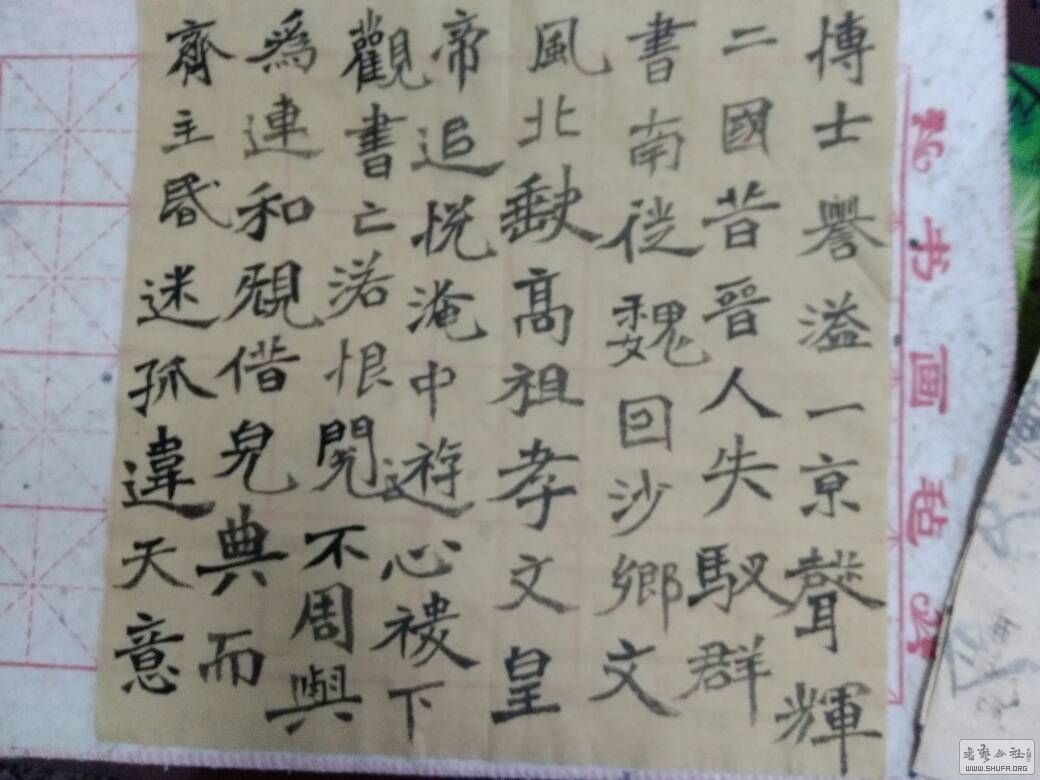 博士譽溢一京聲輝
二國昔晉人失馭群
書南從魏回沙鄉文
風北缺高祖孝文皇
帝追悅淹中遊心稷下
觀書亡落恨閱不周與
爲連和規借完典而
齊主昏迷孤違天意
书画毡
书艺公社
WWW.SHUFA.ORG